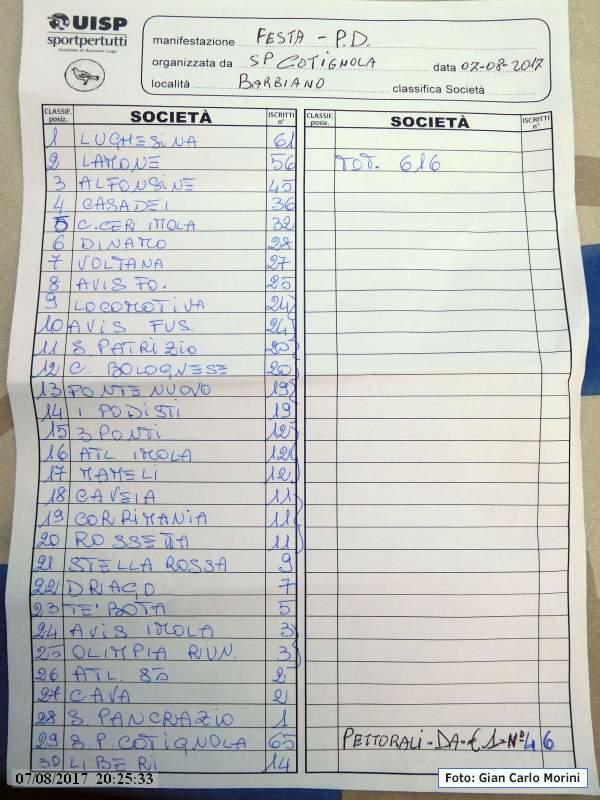 UISP
sportpertutti
Comitato di Ravenna-Lugo
manifestazione FESTA - P.D.
organizzata da SP COTIGNOLA data 07-08-2017
località BARBIANO classifica Società
CLASSIF. posiz. SOCIETÀ ISCRITTI n°
1 LUGHESINA 61
2 LAMONE 56
3 ALFONSINE 45
4 CASADEI 36
5 C.CERI IMOLA 32
6 DINAMO 28
7 VOLTANA 27
8 AVIS FO. 25
9 LOCOMOTIVA 24
10 AVIS FUS. 24
11 S. PATRIZIO 20
12 C. BOLOGNESE 20
13 PONTE NUOVO 19
14 I PODISTI 19
15 3 PONTI 12
16 ATL IMOLA 12
17 MAMELI 12
18 CAVEIA 11
19 CORRIMANIA 11
20 ROSSETTA 11
21 STELLA ROSSA 9
22 DRAGO 7
23 TE' BOTA 5
24 AVIS IMOLA 3
25 OLIMPIA RIUN. 3
26 ATL. 85 2
27 CAVA 2
28 S. PANCRAZIO 1
29 S.P. COTIGNOLA 65
30 LIBERI 14
CLASSIF. posiz. SOCIETÀ ISCRITTI n°
TOT. 616
PETTORALI - DA - € 1 - N° 46
07/08/2017 20:25:33
Foto: Gian Carlo Morini